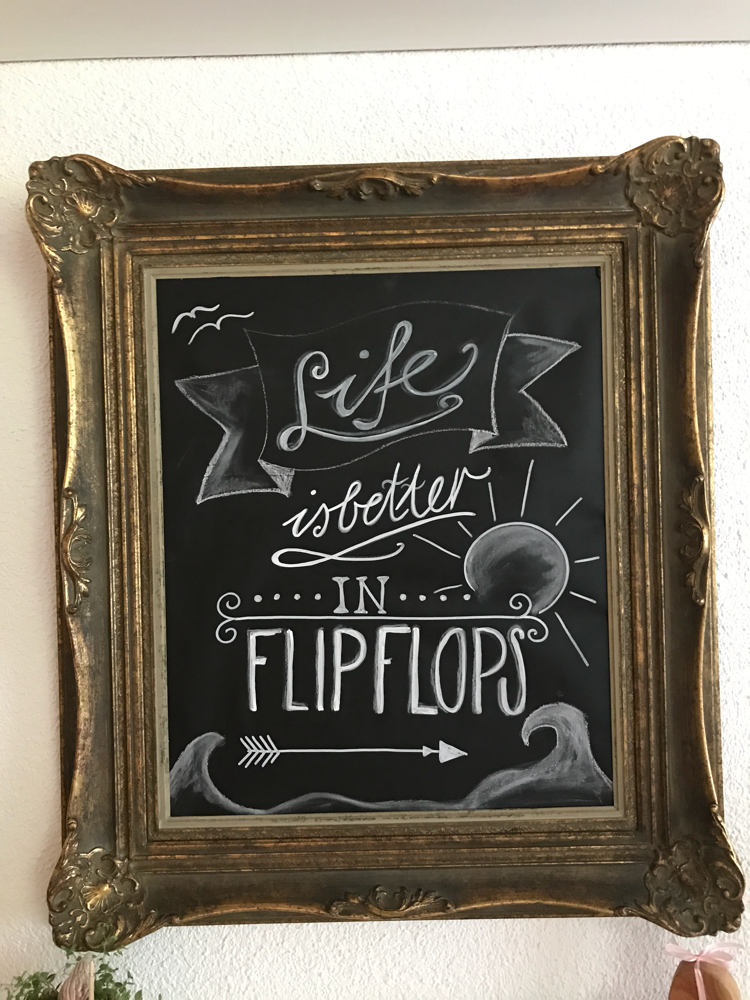 Life
is better
IN
FLIPFLOPS